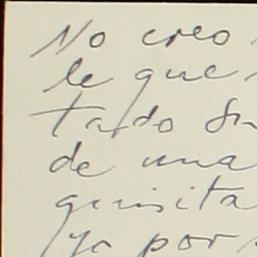 No creo
le que
tardo en
de una
quisita
yo por